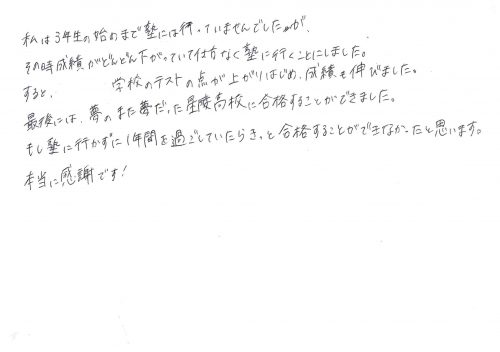 私は3年生の始めまで塾には行っていませんでしたが、
その時成績がどんどん下がっていて仕方なく塾に行くことにしました。
すると、 学校のテストの点が上がりはじめ、成績も伸びました。
最後には、夢のまた夢だった星陵高校に合格することができました。
もし塾に行かずに1年間を過ごしていたらきっと合格することができなかったと思います。
本当に感謝です!